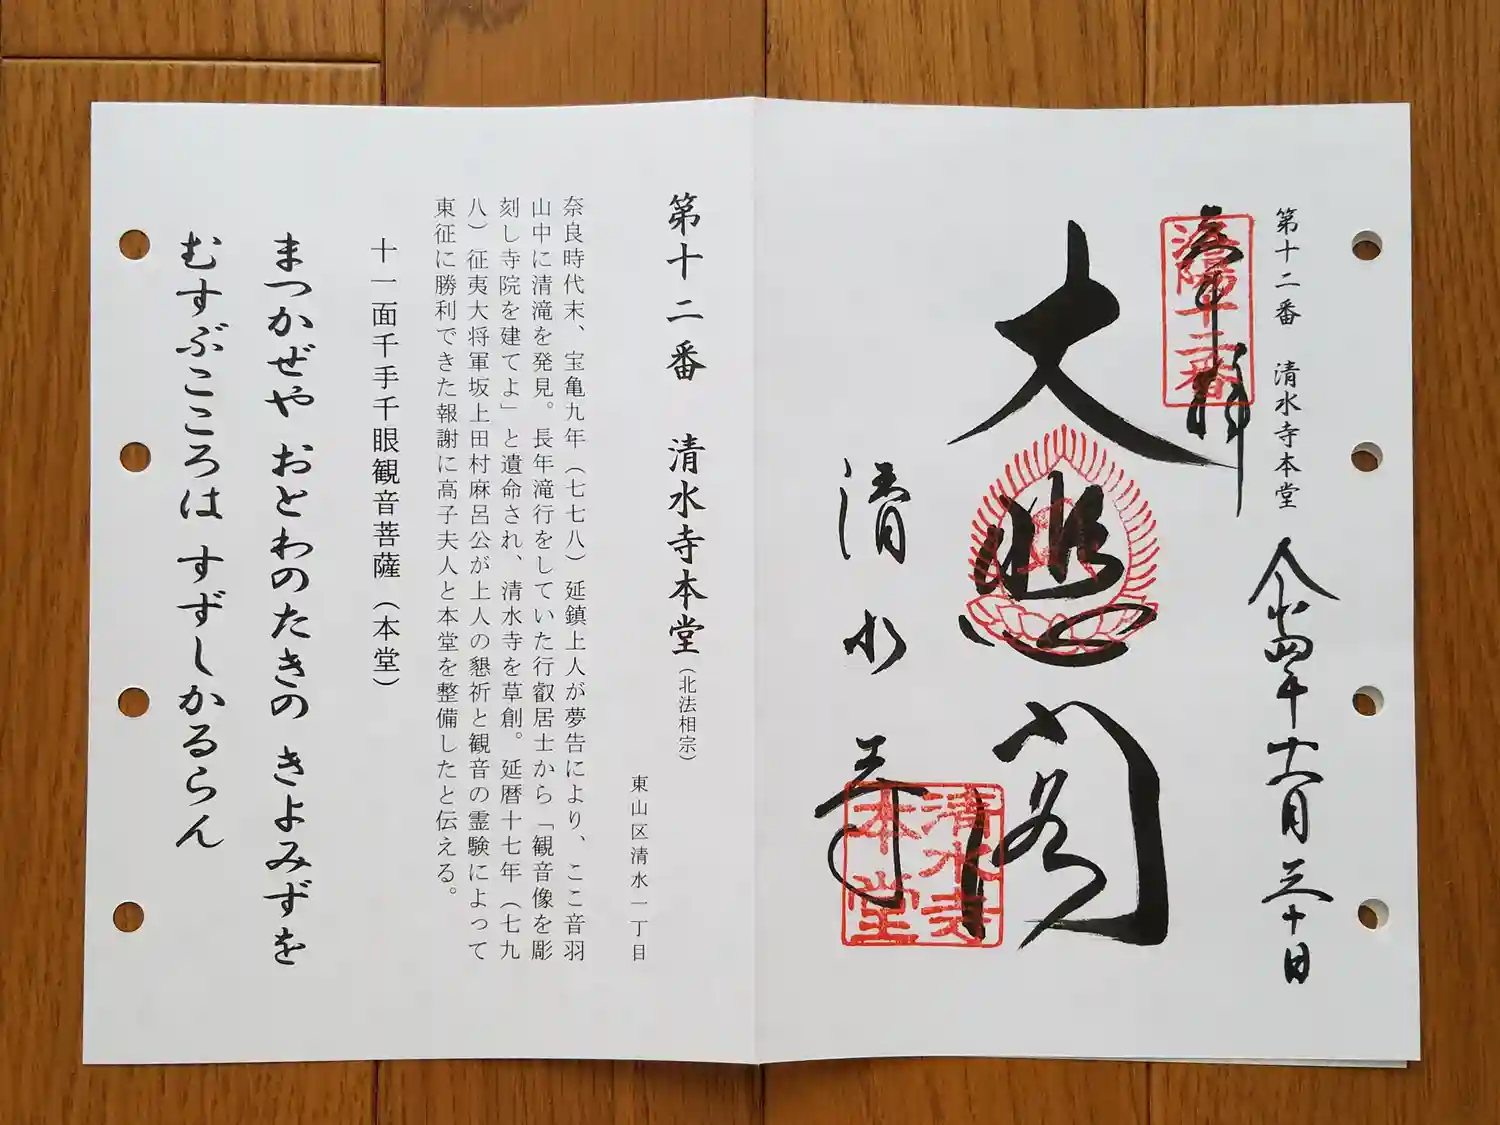 第十二番 清水寺本堂
令和四年十一月三十日
奉拝
洛陽十二番
大悲閣
清水寺
清水寺
本堂
第十二番 清水寺本堂（北法相宗）
東山区清水一丁目
奈良時代末、宝亀九年（七七八）延鎮上人が夢告により、ここ音羽
山中に清滝を発見。長年滝行をしていた行叡居士から「観音像を彫
刻し寺院を建てよ」と遺命され、清水寺を草創。延暦十七年（七九
八）征夷大将軍坂上田村麻呂公が上人の懇祈と観音の霊験によって
東征に勝利できた報謝に高子夫人と本堂を整備したと伝える。
十一面千手千眼観音菩薩（本堂）
まつかぜや おとわのたきの きよみずを
むすぶこころは すずしかるらん